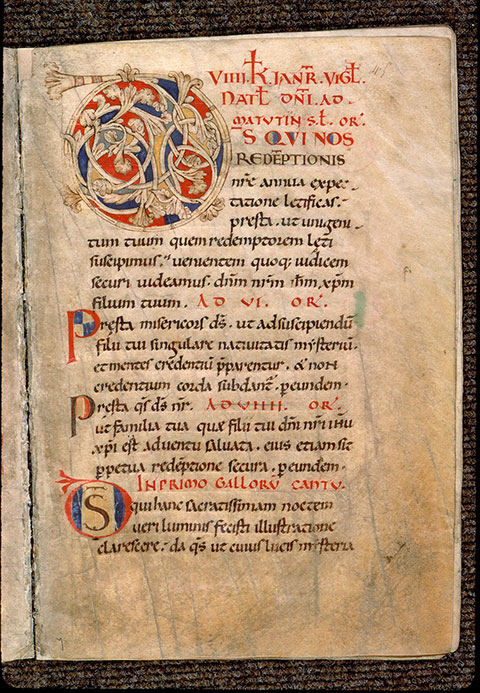 VIIII. K̄ IANR̄. VIGL̄.
NATL̄ DN̄I. AD
MATUTIN S.T̄. OR̄.
DS̄ QVI NOS
REDĒPTIONIS
nr̄e annua expec-
tatione letificas.
presta. ut unigeni
tum tuum quem redemptorem leti
suscipimus. venientem quoq; iudicem
securi uideamus. dn̄m nr̄m ih̄m xp̄m
filium tuum. AD VI. OR̄.
Presta misericors ds̄. ut ad suscipiendū
filii tui singulare natiuitatis mysteriū.
et mentes credentiū p̄parentur. & non
credentium corda subdant᷑. p eundem.
Presta qs̄ ds̄ nr̄. AD VIIII. OR̄.
ut familia tua quæ filii tui dn̄i nr̄i ihū
xp̄i est aduentu saluata. eius etiam sit
ꝑpetua redēptione secura. ꝑ eundem.
IN PRIMO GALLORŪ CANTU.
DS̄ qui hanc sacratissimam noctem
ueri luminis fecisti illustratione
clarescere. da qs̄ ut cuius lucis mysteria